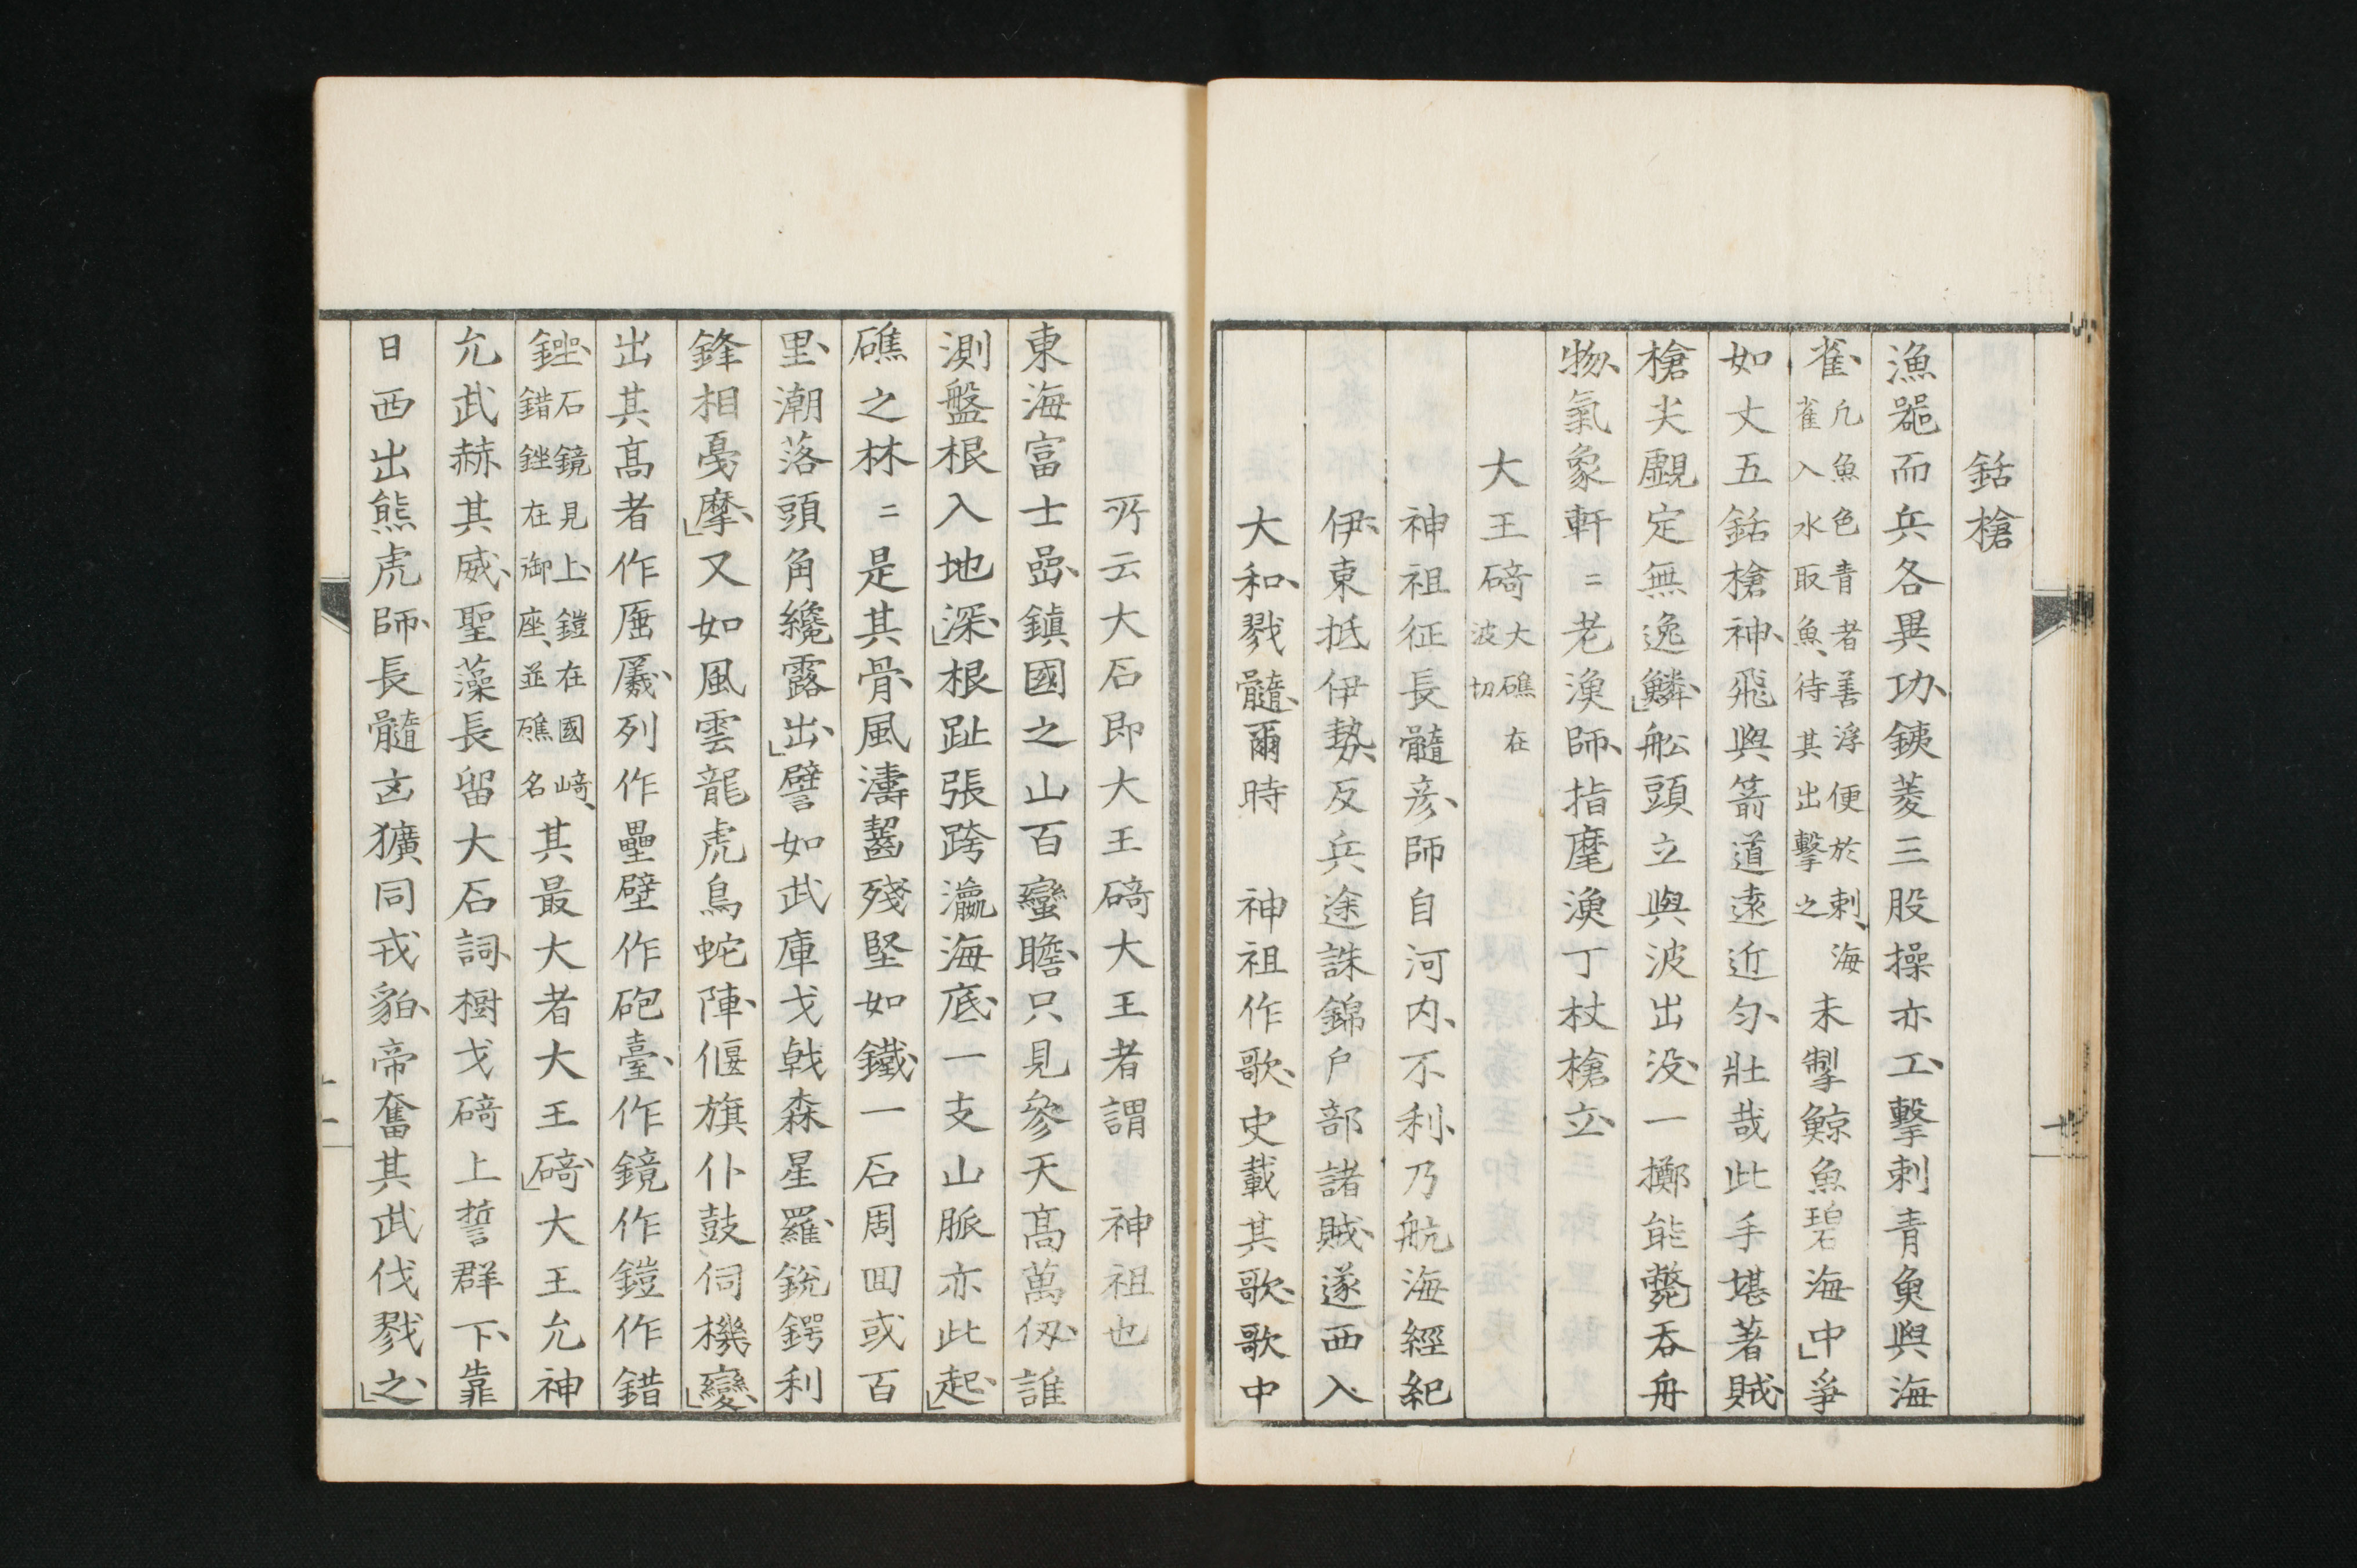 銛槍
漁噐而兵各異功、銕菱三股操亦工、擊刺青魚與海
雀、凡魚色青者善浮便於刺、海雀入水取魚、待其出擊之未掣鯨魚碧海中」爭
如丈五銛槍神、飛與箭道遠近匀、壯哉此手堪著賊、
槍尖覷定無逸鱗」、舩頭立與波出没、一擲能斃吞舟
物、氣象軒〻老漁師、指麾漁丁杖槍立、
大王碕大礁在波切
神祖征長髓彦、師自河内、不利、乃航海經紀
伊、東抵伊勢、反兵途誅錦戶部諸賊、遂西入
大和、戮髓、爾時　神祖作歌、史載其歌、歌中
所云大石即大王碕大王者謂　神祖也
東海富士嵒、鎮國之山百蠻瞻、只見參天高萬仭、誰
測盤根入地深」、根趾張跨瀛海底、一支山脈亦此起」、
礁之林〻是其骨、風濤齧殘堅如鐵、一石周囬或百
里、潮落頭角纔露出」、譬如武庫戈戟森星羅、銳鍔利
鋒相戛摩」、又如風雲龍虎鳥蛇陣、偃旗仆鼓伺機變」、
出其高者作厜㕒、列作壘壁作砲臺、作鏡作鎧作錯
銼、石鏡見上、鎧在國﨑、錯銼在御座、並礁名其最大者大王碕」、大王允神
允武赫其威、聖藻長留大石詞、樹戈碕上誓群下、靠
日西出熊虎師、長髓㐫獷同戎貊、帝奮其武伐戮之」、